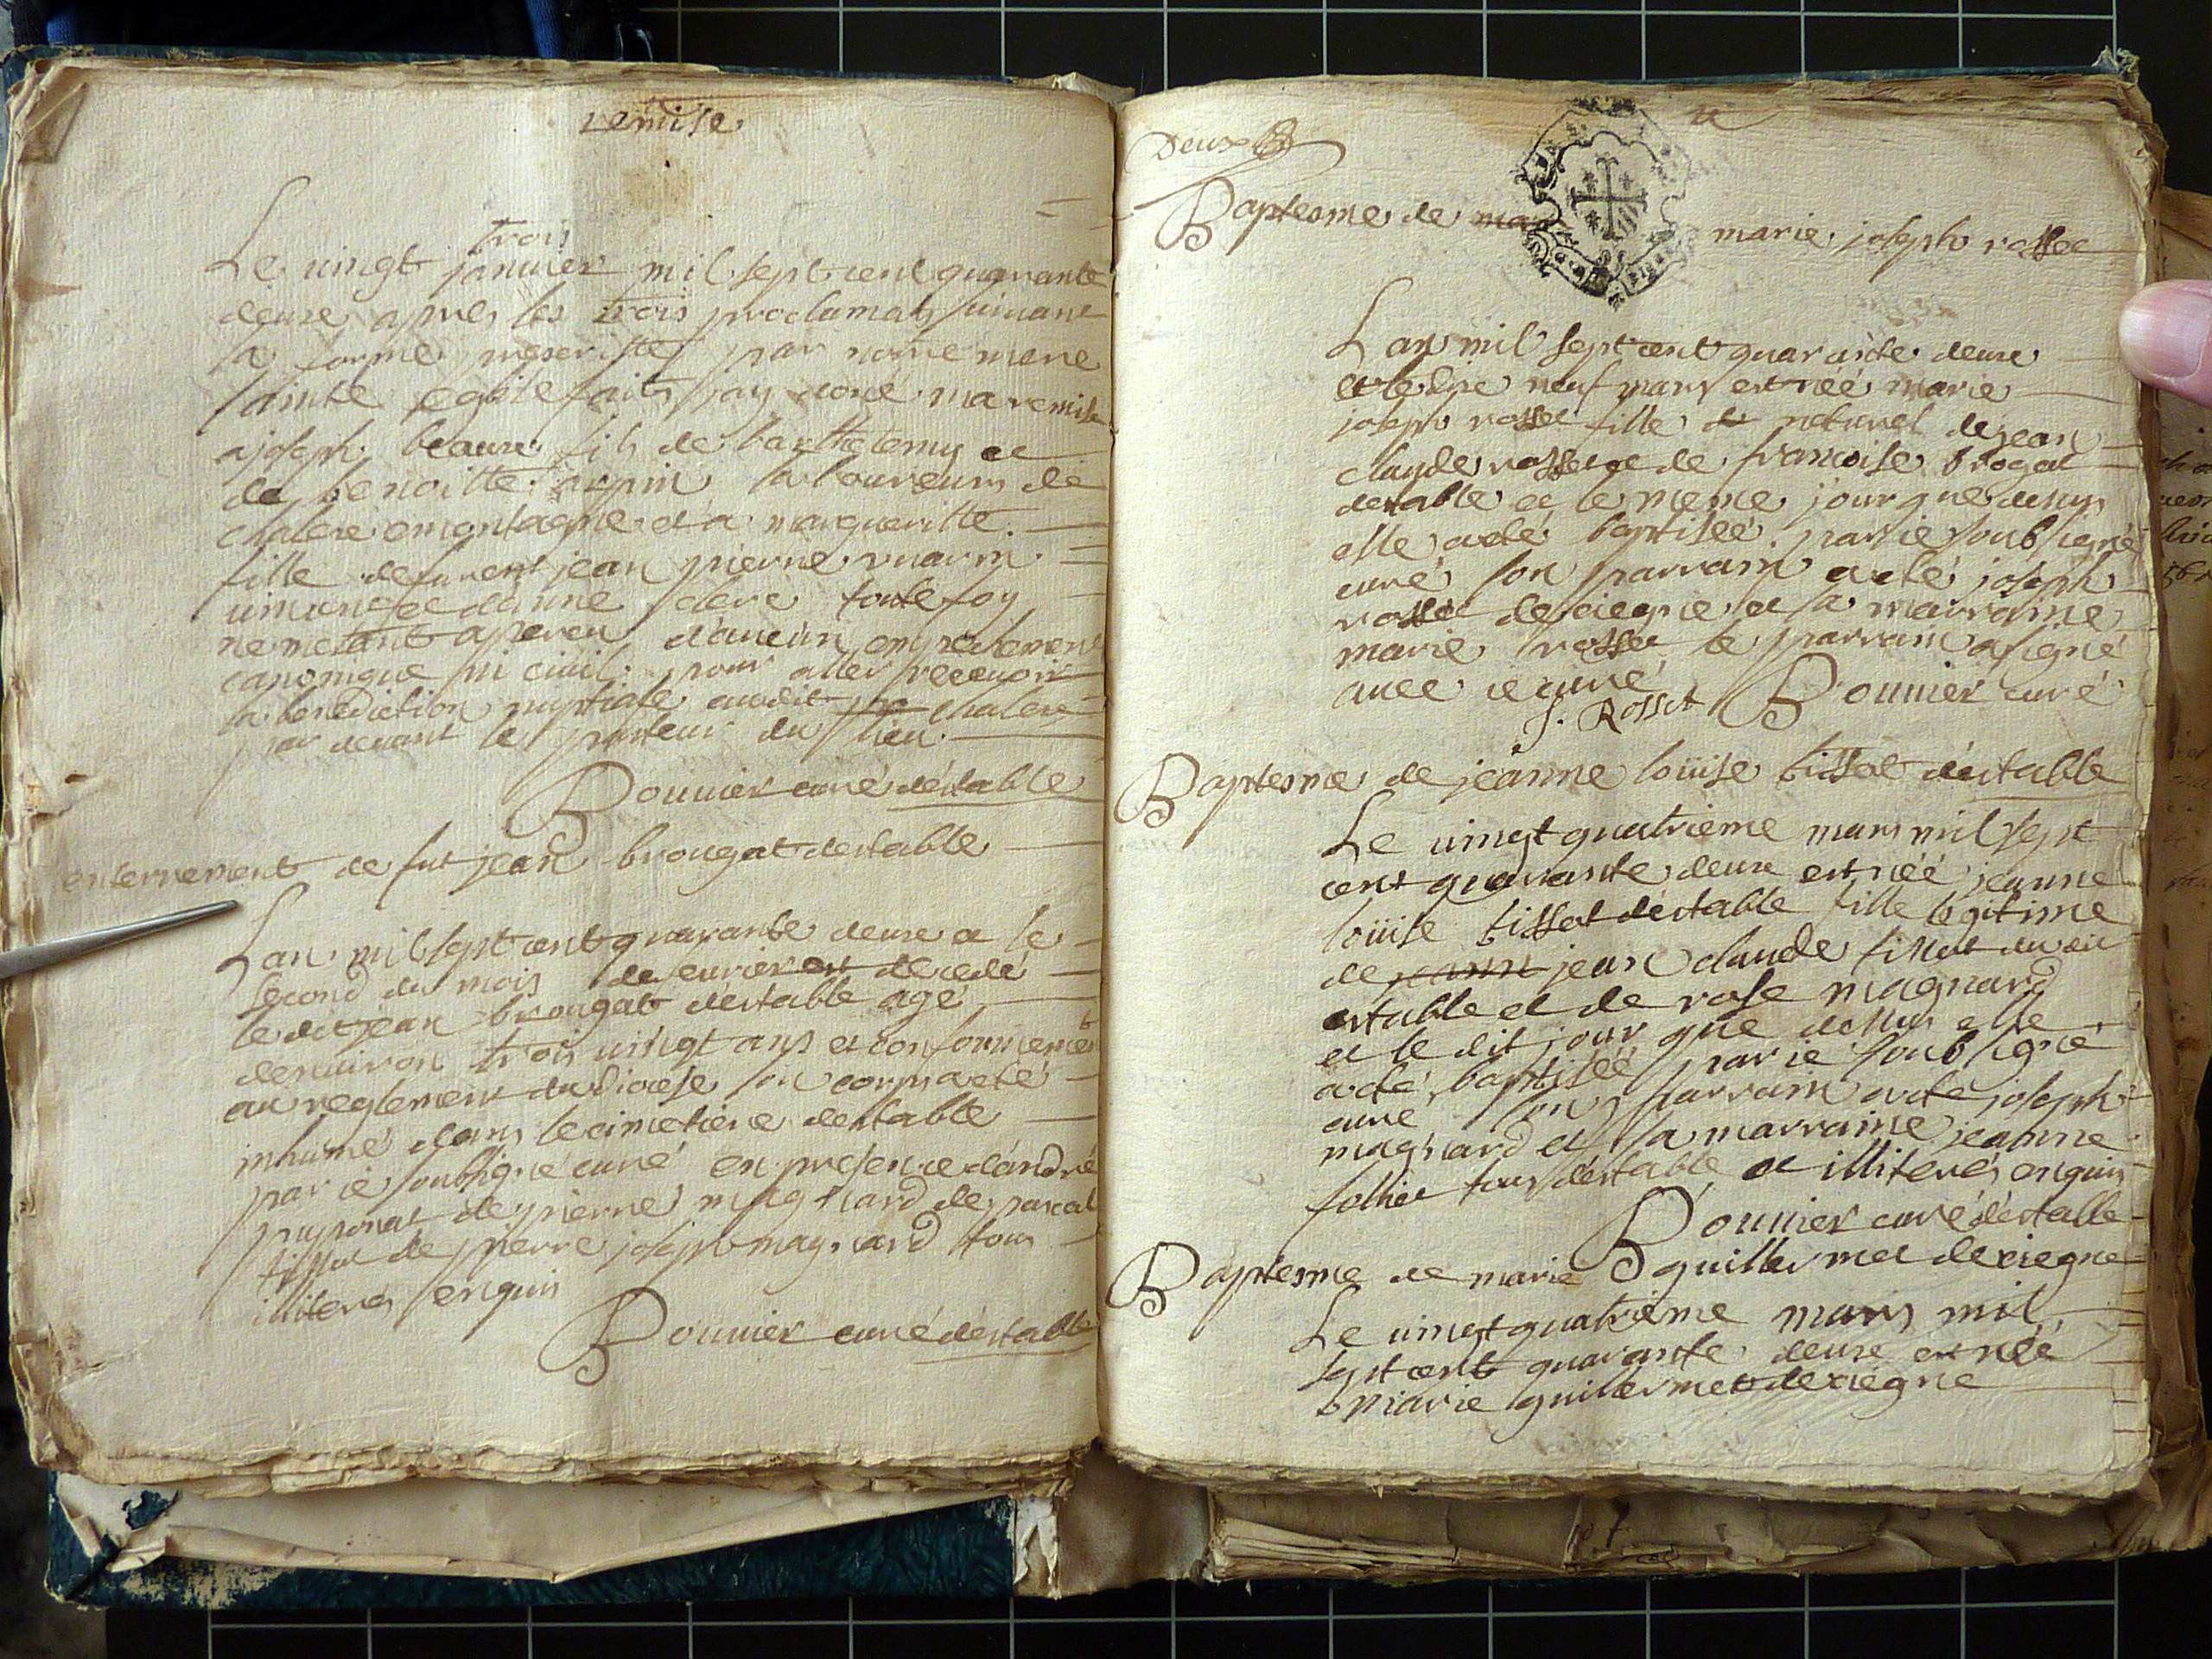 remise
trois
Le vingt janvier mil sept cent quarante
deuze apres les trois proclamats suivant
la forme prescritte par notre mere
sainte eglise faits jay doné ma remise
a joseph beauze fils de barthelemy et
de benoitte arpin laboureurs de
chalere emontagne et a margueritte
fille defurent jean pierre vuarin
vivant et danne clere toutefoy
ne metant aperceu d'aucun empechement
canonique ni civil pour aller recevoir
la benediction nuptiale audit chalere
par devant le pasteur du lieu
Bouvier curé déstable
enterrement de fut jean brougat destable
Lan mil sept cent quarante deuze et le
second du mois de fevrier est decedé
le dit jean brougat déstable agé
denviron trois vingt ans et conformement
au reglement du dioese son corps a eté
inhumé dans le cimetiere destable
par ie soubsigné curé en presence d'andré
pryponat de pierre magnard de pascal
tissot de pierre joseph magnard tous
illiterés enquis
Bouvier curé déstable
Deux
Baptesme de marie joseph rosset
Lan mil sept cent quarante deuze
et le dix neuf mars est néé marie
joseph rosset fille et naturel de jean
claude rosset et de francoise brogat
destable et le meme jour que desus
elle a eté baptisée par ie soubsigné
curé son parrain a eté joseph
rosset deciegne et sa marraine
marie rosset le parrain a signé
avec ie curé
J. Rosset Bouvier curé
Baptesme de jeanne loüise tissot déstable
Le vingt quatrieme mars mil sept
cent quarante deuze est néé jeanne
loüise tissot déstable fille legitime
de jean claude tissot du dit
estable et de rose magnard
et le dit jour que desus elle
a eté baptisée par ie soubsigné
curé son parrain a eté joseph
magnard et sa marraine jeanne
folliet tous déstable et illiterés enquis
Bouvier curé déstable
Baptesme de marie guillermet deciegne
Le vingt quatrieme mars mil
sept cent quarante deuze est néé
marie guillermet deciegne